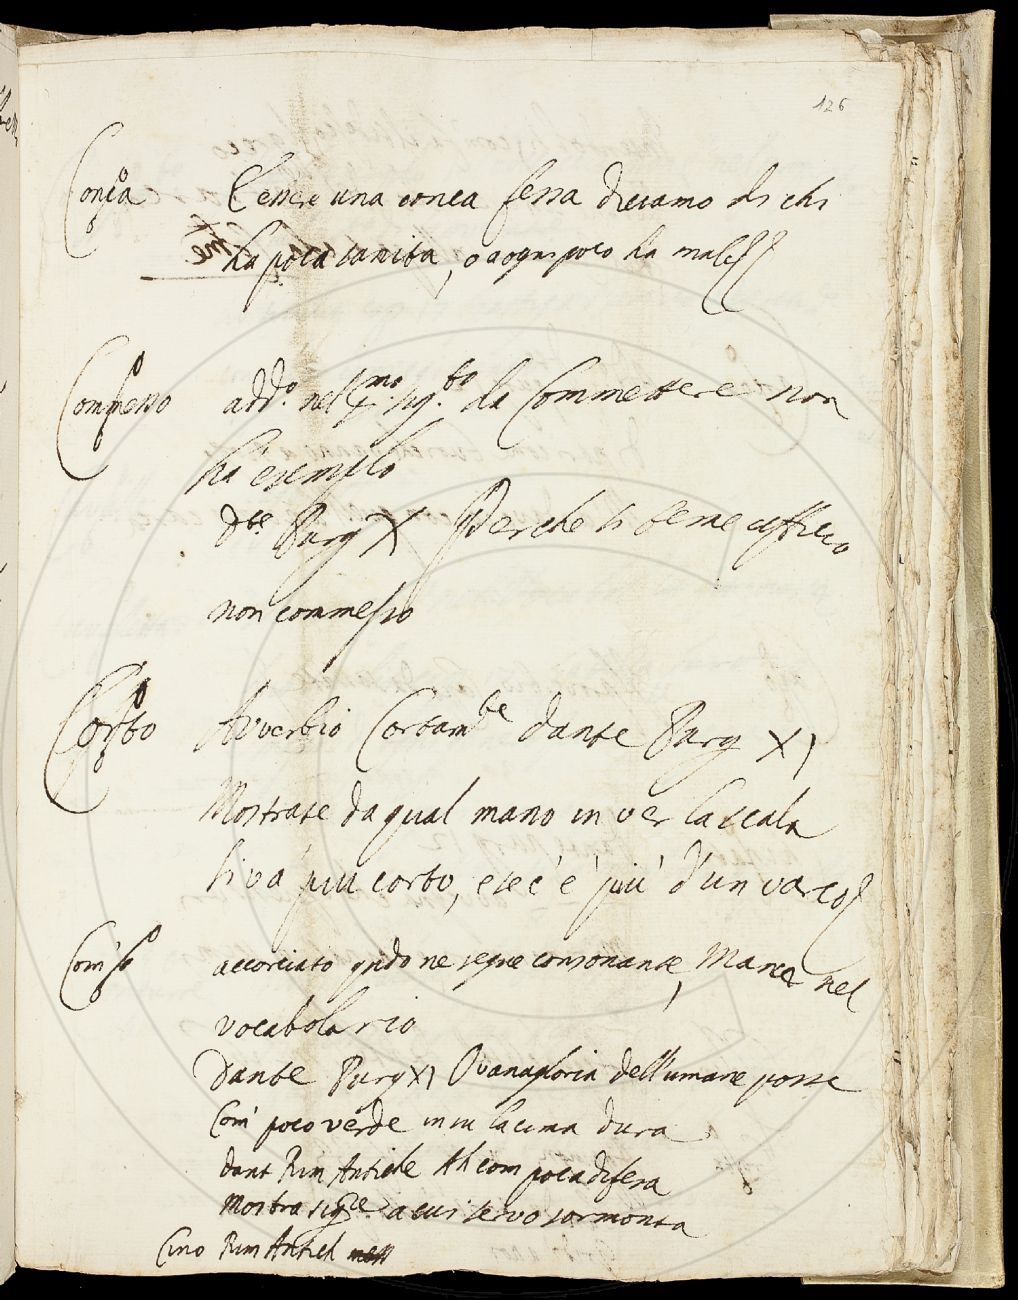 126
Conca L'essere una conca fessa diciamo di chi
ha poca sanita, o a ogni poco ha male
Commesso add.o nel sig.to da Commettere non
ha esemplo
Dte Purg X Perche si teme ufficio
non commesso
Corto Avverbio Cortamte Dante Purg XI
Mostrate da qual mano in ver la scala
si va più corto, e se c'è più d'un varco
Com' accorciato qndo ne segue consonante, Manca nel
vocabolario
Dante Purg XI O vana gloria dell'umane posse
Com' poco verde in su la cima dura
Dant Rim Antiche Ah com poca difesa
Mostra sigre a cui servo sormonta
Cino Rim Antich